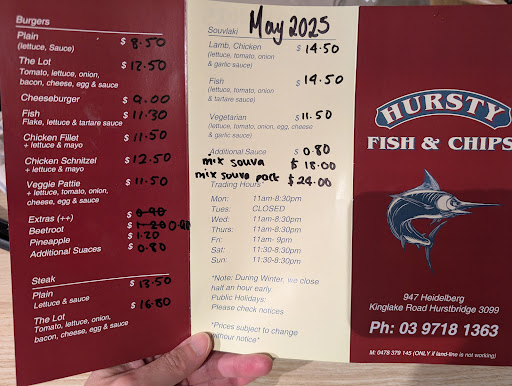 Burgers
Plain $ 8.50
(lettuce, Sauce)
The Lot $ 12.50
Tomato, lettuce, onion,
bacon, cheese, egg & sauce
Cheeseburger $ 9.00
Fish $ 11.30
Flake, lettuce & tartare sauce
Chicken Fillet $ 11.50
+ lettuce & mayo
Chicken Schnitzel $ 12.50
+ lettuce & mayo
Veggie Pattie $ 11.50
+ lettuce, tomato, onion,
cheese, egg & sauce
Extras (++) $ 0.90
Beetroot $ 1.20 0.90
Pineapple $ 1.20
Additional Suaces $ 0.80
Steak
Plain $ 13.50
Lettuce & sauce
The Lot $ 16.80
Tomato, lettuce, onion,
bacon, cheese, egg & sauce
Souvlaki May 2025
Lamb, Chicken $ 14.50
(lettuce, tomato, onion
& garlic sauce)
Fish $ 14.50
(lettuce, tomato, onion
& tartare sauce)
Vegetarian $ 11.50
(lettuce, tomato, onion, egg, cheese
& garlic sauce)
Additional Sauce $ 0.80
mix souva $ 18.00
mix souva pack $ 24.00
Trading Hours*
Mon: 11am-8:30pm
Tues: CLOSED
Wed: 11am-8:30pm
Thurs: 11am-8:30pm
Fri: 11am- 9pm
Sat: 11:30-8:30pm
Sun: 11:30-8:30pm
*Note: During Winter, we close
half an hour early.
Public Holidays:
Please check notices
*Prices subject to change
withour notice*
HURSTY
FISH & CHIPS
947 Heidelberg
Kinglake Road Hurstbridge 3099
Ph: 03 9718 1363
M: 0478 379 145 (ONLY if land-line is not working)